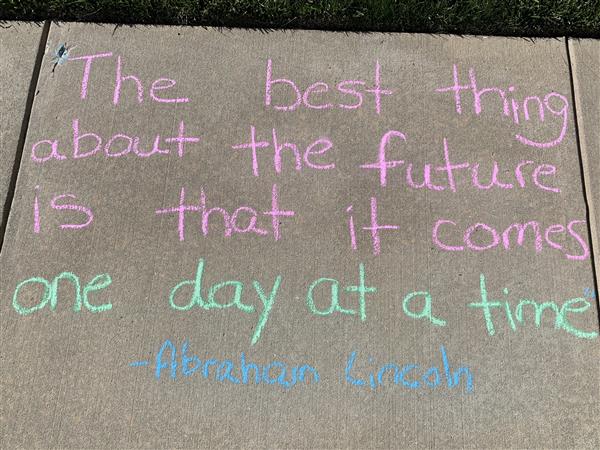 "The best thing
about the future
is that it comes
one day at a time"
-Abraham Lincoln